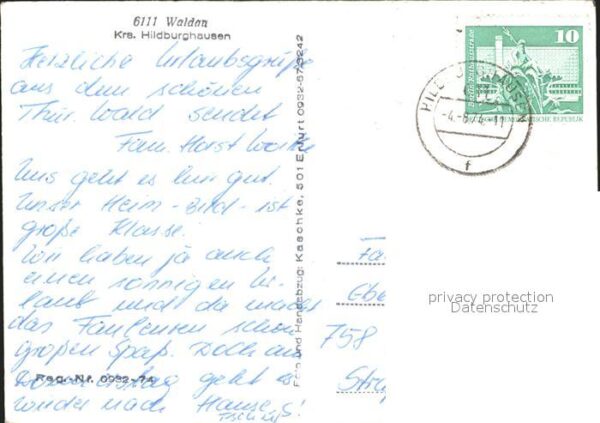 6111 Waldau
Krs. Hildburghausen
Herzliche Urlaubsgrüße
aus dem schönen
Thür. Wald sendet
Fam. Horst
Uns geht es hier gut.
Unser Heim - Bild - ist
große Klasse.
Wir haben ja auch
einen sonnigen Ur-
laub und da macht
das Faulenzen schon
großen Spaß. Doch am
Reg.-Nr. 0932-74
Donnerstag geht es
wieder nach Hause,
Tschüß!
Foto und Handabzug: Kaschke, 501 Erfurt 0932-67 3242
10
-4.-6.74-11
f
DEUTSCHE DEMOKRATISCHE REPUBLIK
Fa
Ebe
758
Str
privacy protection
Datenschutz